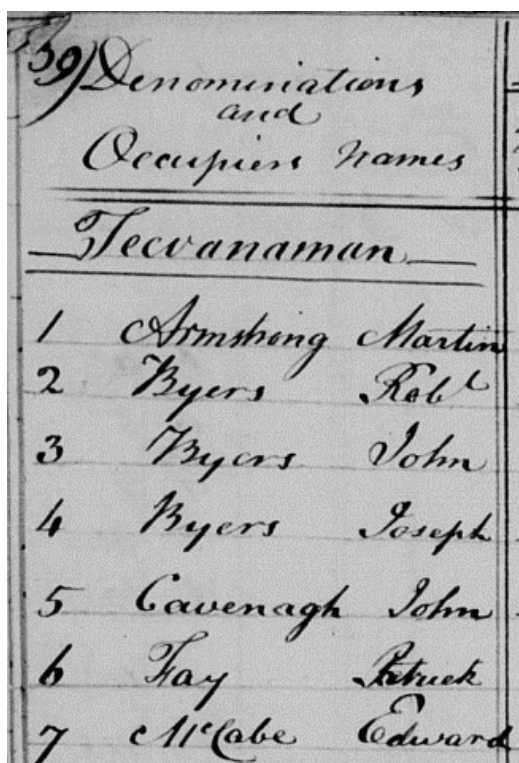 59) Denominations
and
Occupiers Names
Tecvanaman
1 Armstrong Martin
2 Byers Robt
3 Byers John
4 Byers Joseph
5 Cavenagh John
6 Fay Patrick
7 McCabe Edward